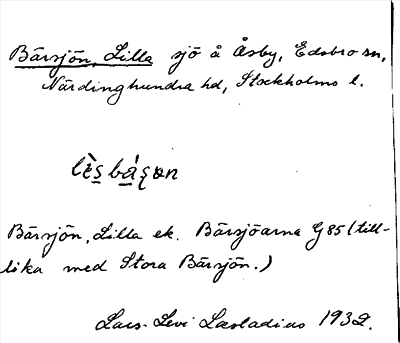 Bärsjön, Lilla sjö å Åsby, Edsbro sn,
Närdinghundra hd, Stockholms l.
Bärsjön, Lilla ek. Bärsjöarna G85 (till-
lika med Stora Bärsjön.)
Lars-Levi Læstadius 1932.